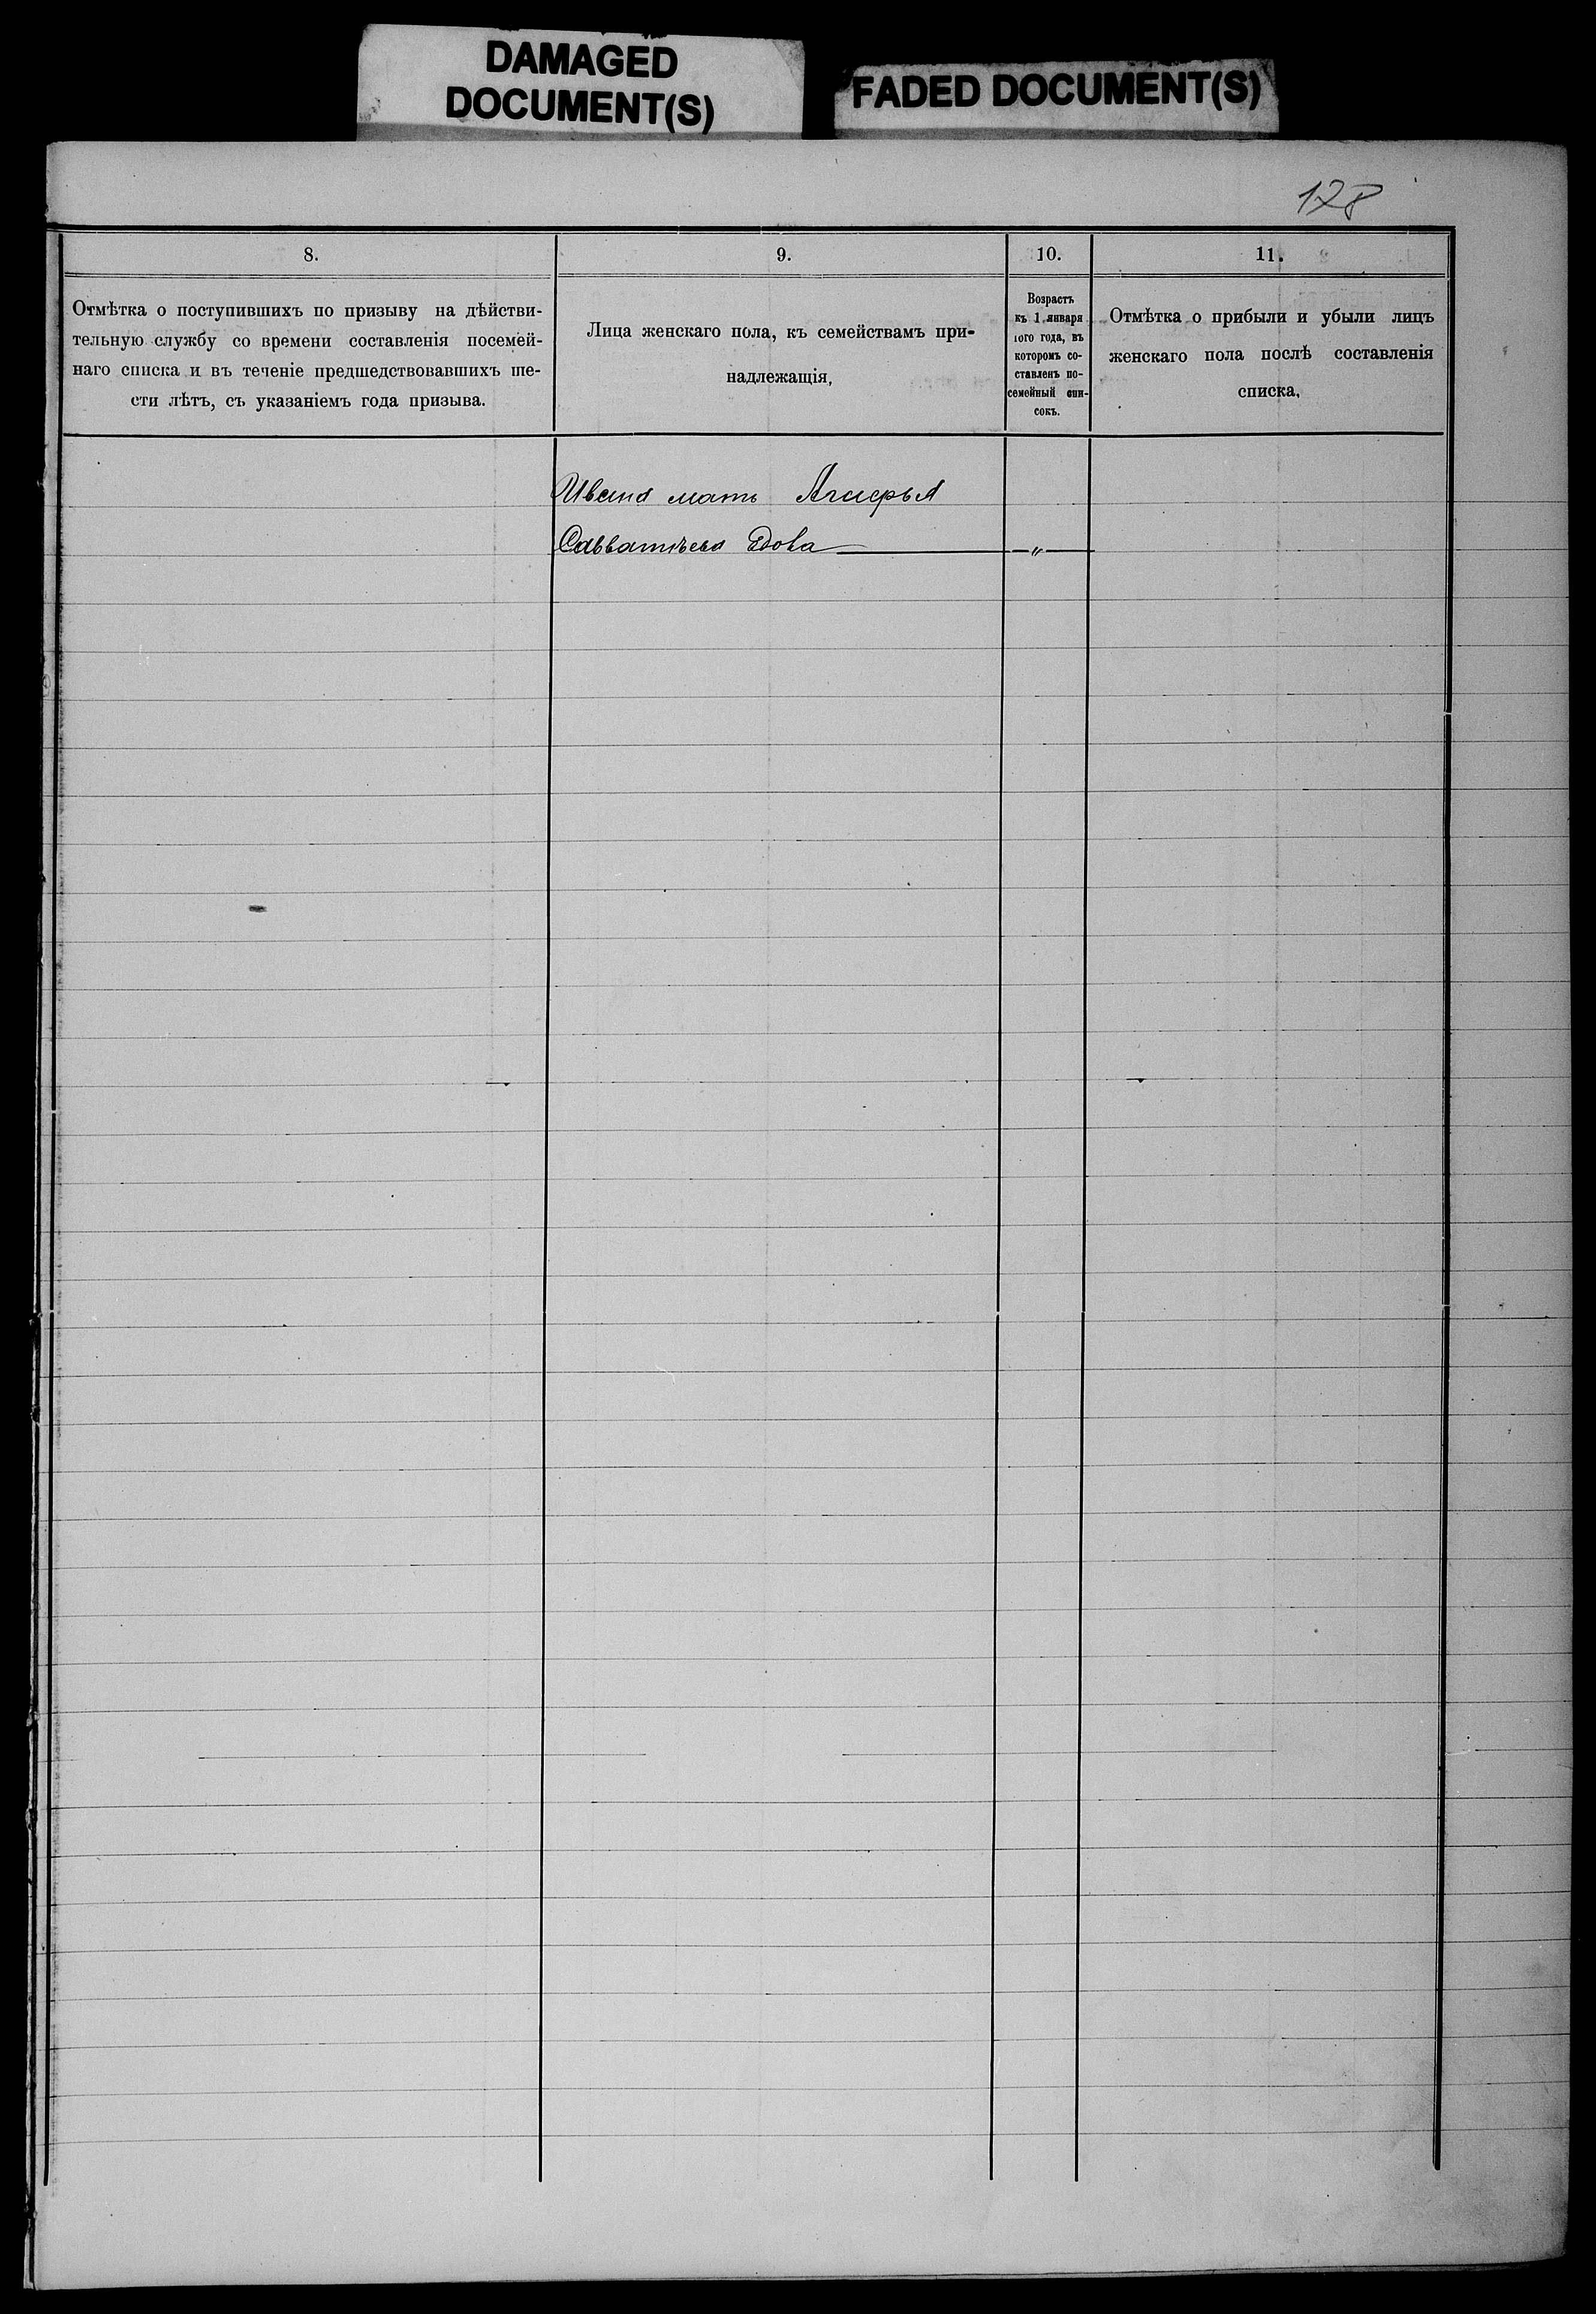 DAMAGED
DOCUMENT(S)
FADED DOCUMENT(S)
128
8.
9.
10.
11.
Отмѣтка о поступившихъ по призыву на дѣйстви-
тельную службу со времени составленія посемей-
наго списка и въ теченіе предшедствовавшихъ ше-
сти лѣтъ, съ указаніемъ года призыва.
Лица женскаго пола, къ семействамъ при-
надлежащія,
Возрастъ
къ 1 января
того года, въ
которомъ со-
ставленъ по-
семейный спи-
сокъ.
Отмѣтка о прибыли и убыли лицъ
женскаго пола послѣ составленія
списка.
Ивана мать Агафья
Савватѣева вдова — „ —